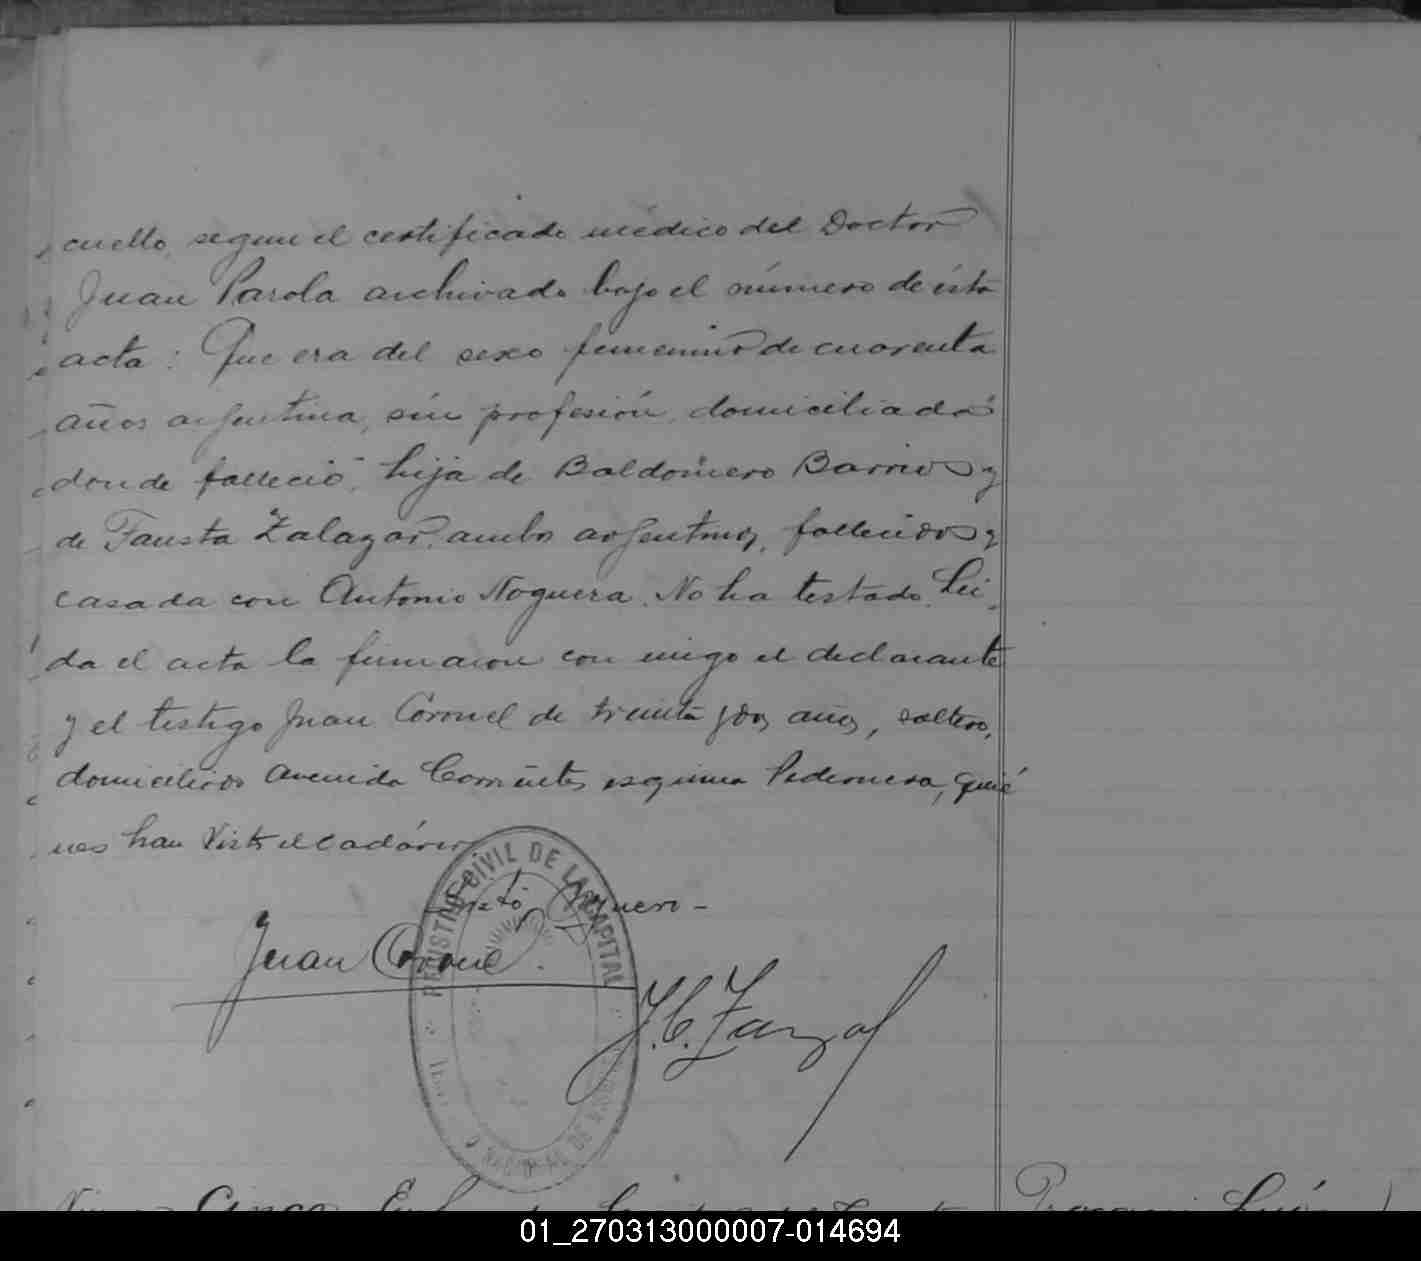 cuello, segun el certificado médico del Doctor
Juan Parola archivado bajo el número de ésta
acta: Que era del sexo femenino de cuarenta
años argentina, sin profesión, domiciliada
donde falleció, hija de Baldomero Barrios y
de Fausta Zalazar, ambos argentinos, fallecidos y
casada con Antonio Noguera. No ha testado. Lei
da el acta la firmaron con migo el declarante
y el testigo Juan Coronel de treinta y dos años, soltero,
domiciliados Avenida Corrientes esquina Pedernera, quié
nes han visto el cadáver
Juan Coronel
REGISTRO CIVIL DE LA CAPITAL
NACIONAL DE
J. C.
Cinco
01_270313000007-014694